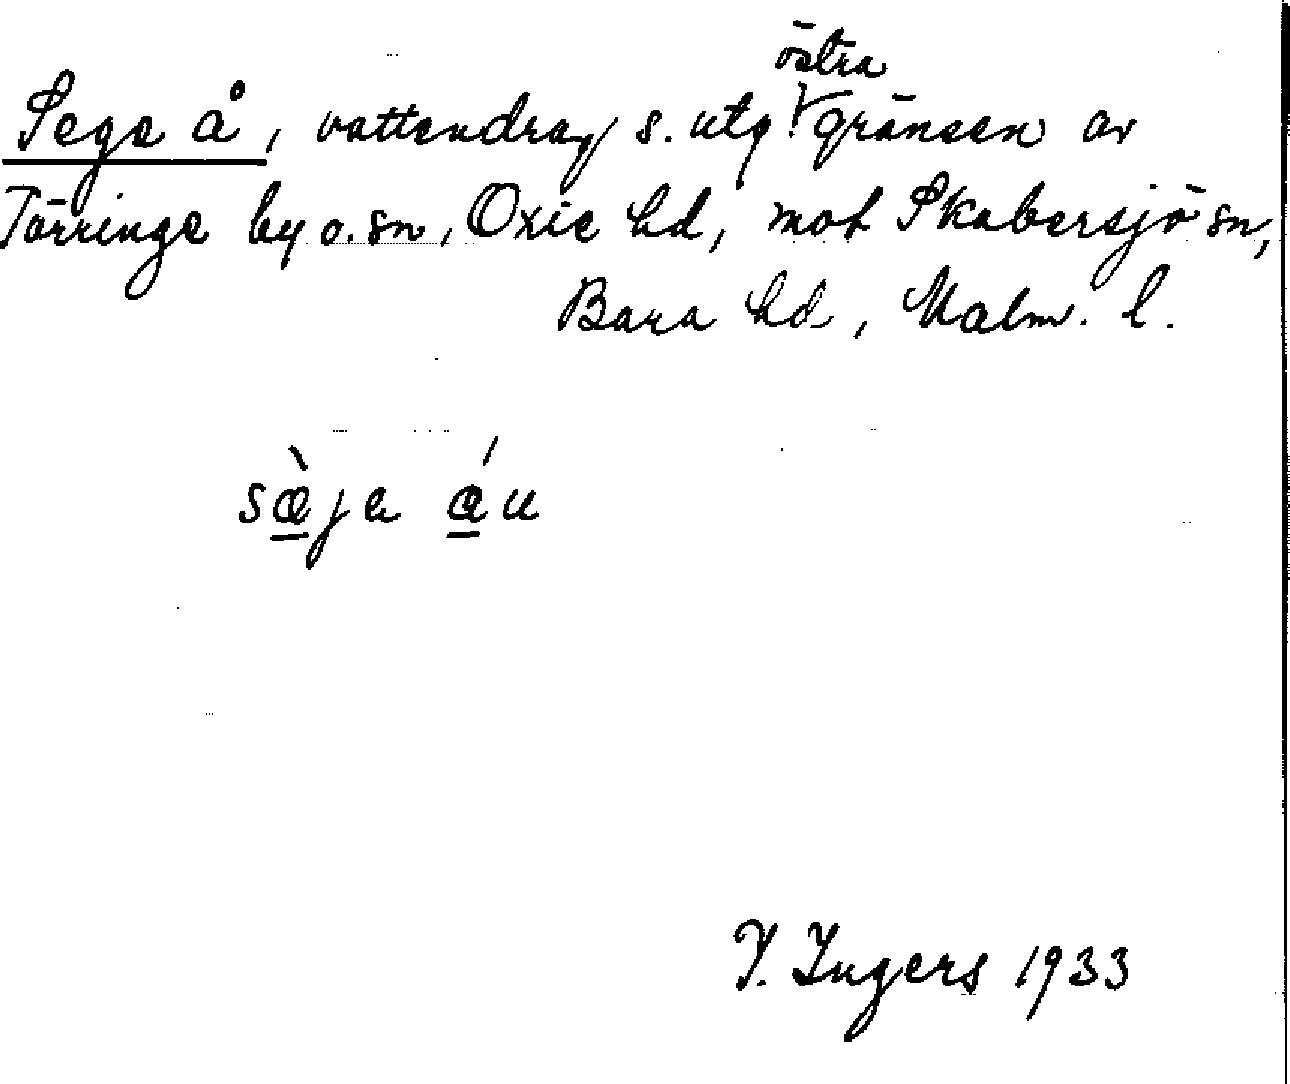 östra
Sege å, vattendrag s. utg. gränsen av
Törringe by o. sn, Oxie hd, mot Skabersjö sn,
Bara hd, Malm. l.
sæ̱̀ja á̱u
I. Ingers 1933